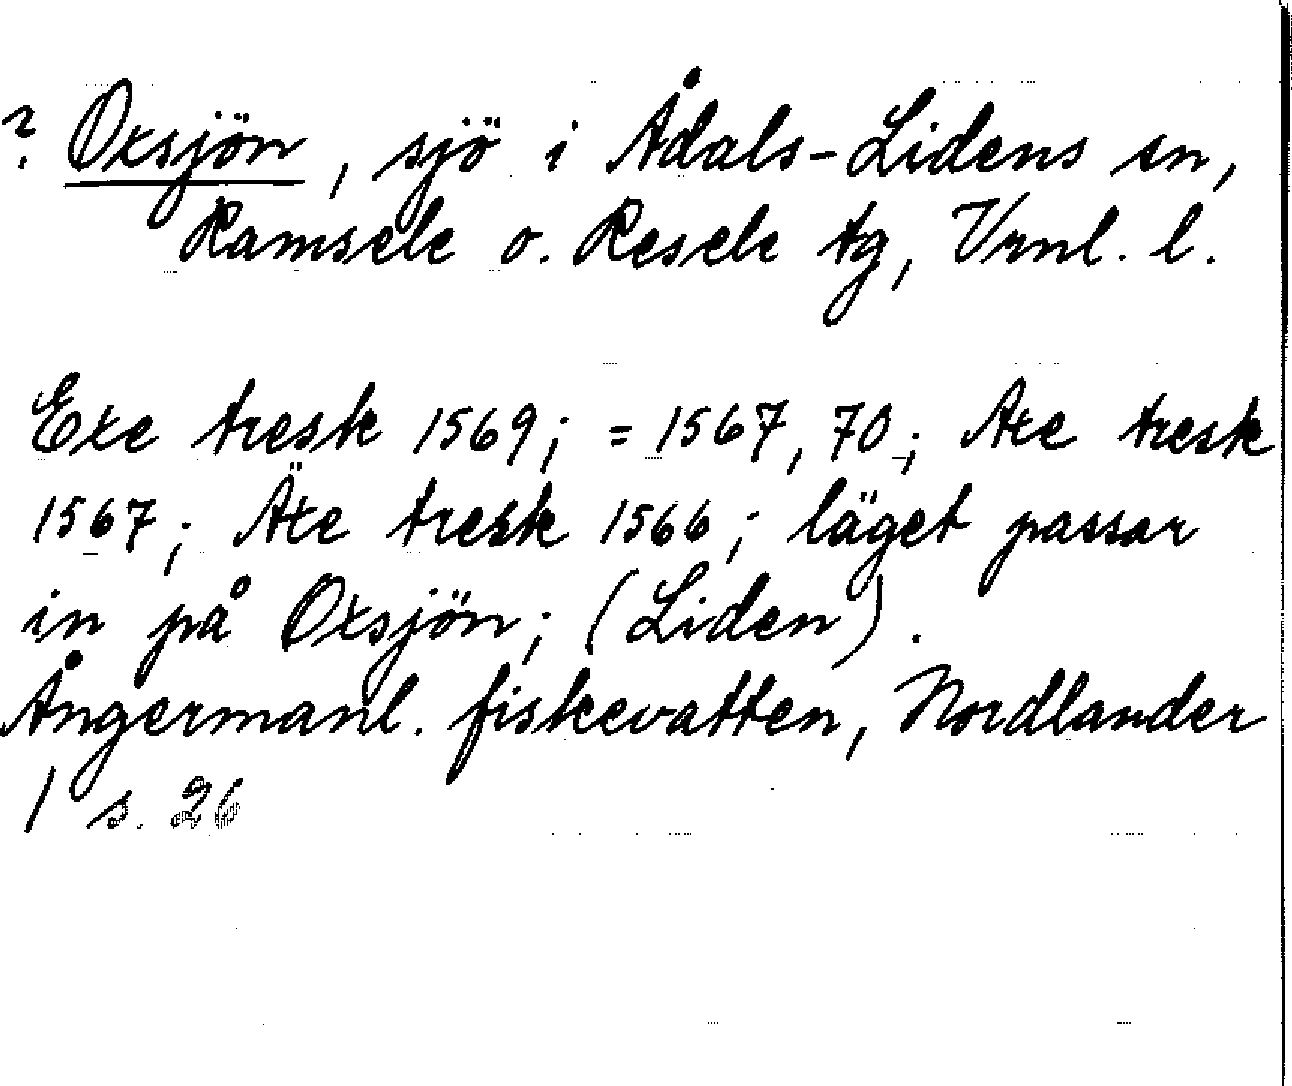 ? Oxsjön, sjö i Ådals-Lidens sn,
Ramsele o. Resele tg, Vrnl. l.
Exe tresk 1569; = 1567, 70; Axe tresk
1567; Äxe tresk 1566; läget passar
in på Oxsjön; (Liden).
Ångermanl. fiskevatten, Nordlander
1 s. 26